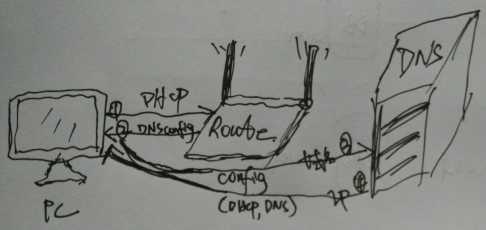 DNS
① DHCP
② DNSconfig
Route
③
config
(DHCP, DNS)
IP ④
PC